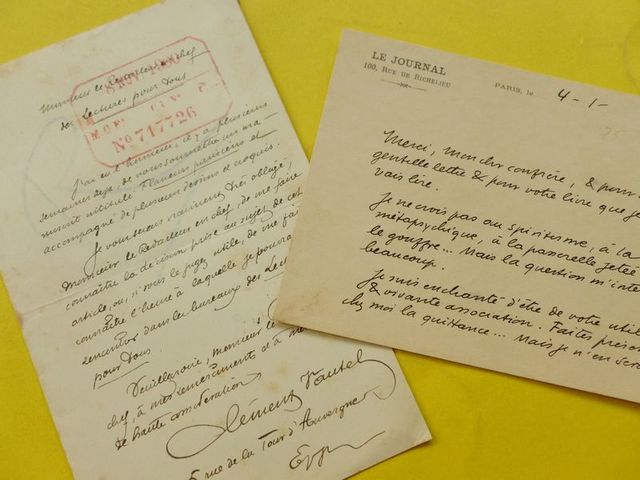 Monsieur le Rédacteur en chef
des Lectures pour Tous
No 717726
J'ai eu l'honneur, il y a plusieurs
semaines déjà, de vous soumettre un ma-
nuscrit intitulé Flâneurs parisiens et
accompagné de plusieurs dessins et croquis.
Je vous serais vraiment très obligé,
Monsieur le Rédacteur en chef, de me faire
connaître la décision prise au sujet de cet
article, ou, si vous le jugez utile, de me fai
connaître l'heure à laquelle je pourrai
rencontrer dans les bureaux des Lec
pour Tous.
Veuillez croire, Monsieur le
chef, à mes remerciements et à m
de haute considération
Clément Vautel
5 rue de la Tour d'Auvergne
LE JOURNAL
100, RUE DE RICHELIEU
PARIS, le 4-1-
Merci, mon cher confrère, & pour
gentille lettre & pour votre livre que je
vais lire.
Je ne crois pas au spiritisme, à la
métapsychique, à la passerelle jetée
le gouffre... Mais la question m'inté
beaucoup.
Je suis enchanté d'être de votre utile
& vivante association. Faites présen
chez moi la quittance... Mais je n'en serai